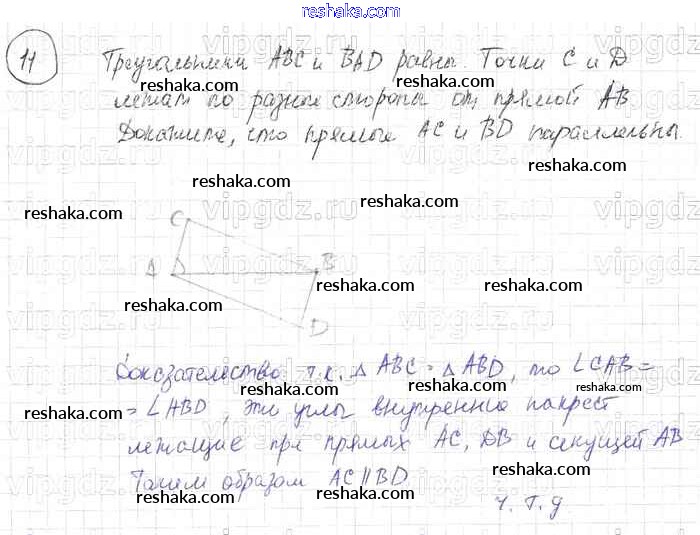 reshaka.com
11
Треугольники ABC и BAD равны. Точки C и D
лежат по разные стороны от прямой AB
Докажите, что прямые AC и BD параллельны.
reshaka.com reshaka.com
reshaka.com
C
A B
D
reshaka.com reshaka.com
reshaka.com
reshaka.com
Доказательство т.к. △ ABC = △ ABD, то ∠CAB =
= ∠ABD, эти углы внутренние накрест
лежащие при прямых AC, DB и секущей AB
Таким образом AC ∥ BD.
ч.т.д
reshaka.com
vipgdz.ru